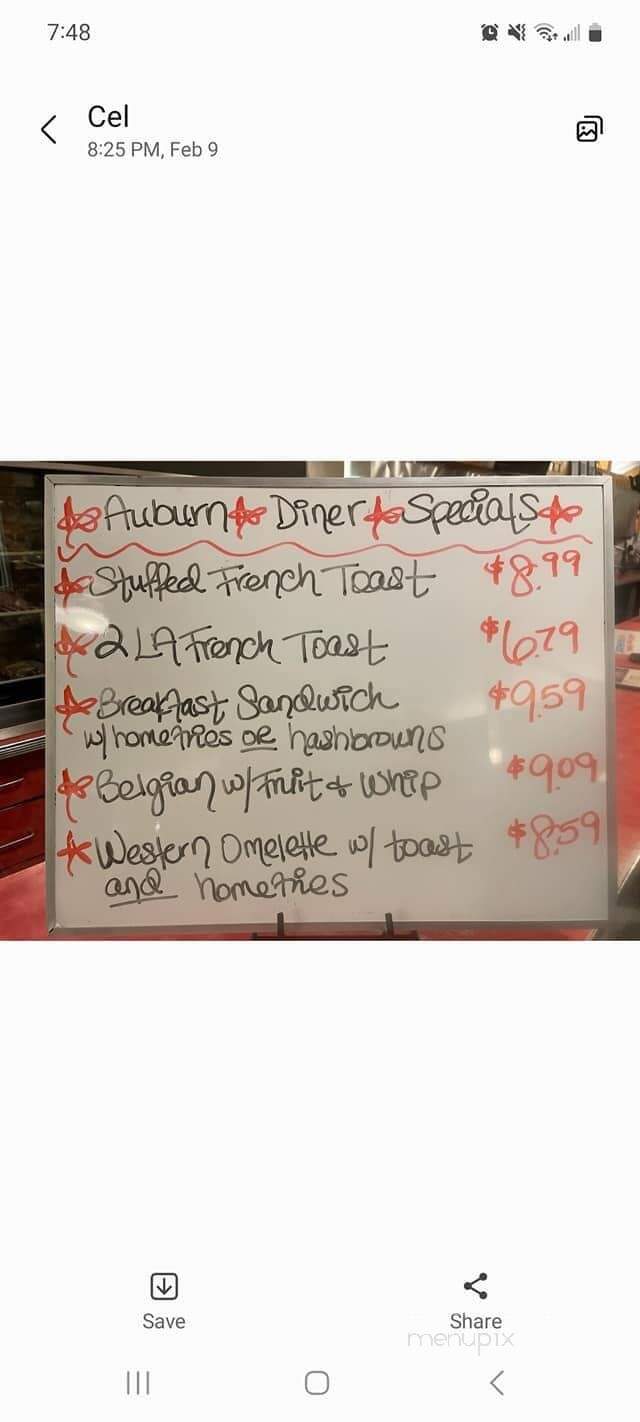 7:48
Cel
8:25 PM, Feb 9
Auburn Diner Specials
Stuffed French Toast $8.99
2 LA French Toast $6.79
Breakfast Sandwich $9.59
w/ homefries OR hashbrowns
Belgian w/ Fruit & Whip $9.09
Western Omelette w/ toast $8.59
and homefries
Save
Share
menupix